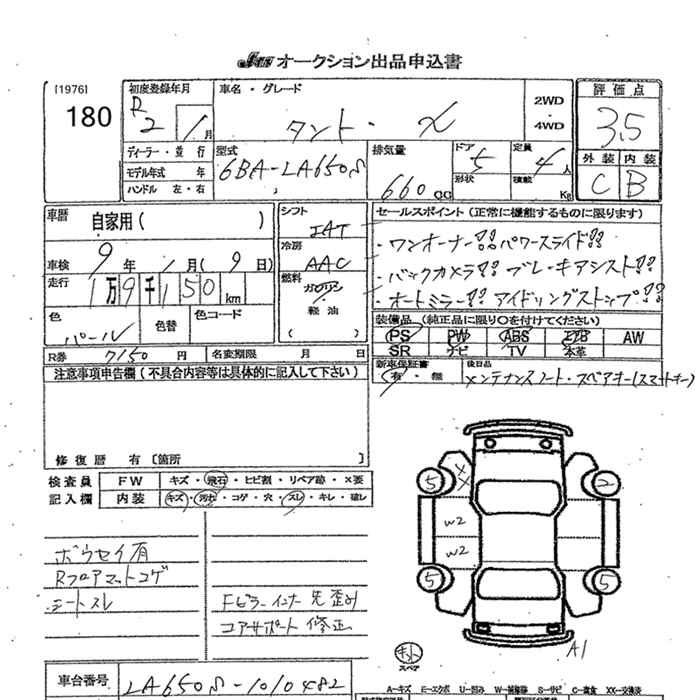 JU オークション出品申込書
[1976]
180
初度登録年月
R
2 / 1月
車名・グレード
タント・X
2WD
・
4WD
評価点
3.5
ディーラー・並行
モデル年式 年
ハンドル 左・右
型式
6BA-LA650S
排気量
660 CC
ドア
5
形状
定員
4人
積載
Kg
外装 内装
C B
車歴
自家用( )
シフト
IAT
セールスポイント(正常に機能するものに限ります)
・ワンオーナー!! パワースライド!!
・バックカメラ!! ブレーキアシスト!!
・オートミラー!! アイドリングストップ!!
車検
9年 1月(9日)
冷房
AAC
走行
1万9千150km
燃料
ガソリン
・
軽油
( )
色
パール
色替
色コード
装備品(純正品に限り○を付けてください)
PS PW ABS エアB AW
SR ナビ TV 本革
R券 7150 円
名変期限 月 日
新車保証書
有・無
後日品
メンテナンスノート・スペアキー(スマートキー)
注意事項申告欄(不具合内容等は具体的に記入して下さい)
修復歴 有〔箇所 〕
検査員
記入欄
FW キズ・飛石・ヒビ割・リペア跡・X要
内装 キズ・汚れ・コゲ・穴・スレ・キレ・破レ
ボウセイ有
Rフロアマットコゲ
シートスレ
Fピラーインナー先歪み
コアサポート修正
XX
5 2
W2
W2
5 5
A1
キット
スペア
車台番号
LA650S-1010482
A-キズ E-エクボ U-凹み W-補修跡 S-サビ C-腐食 XX-交換済